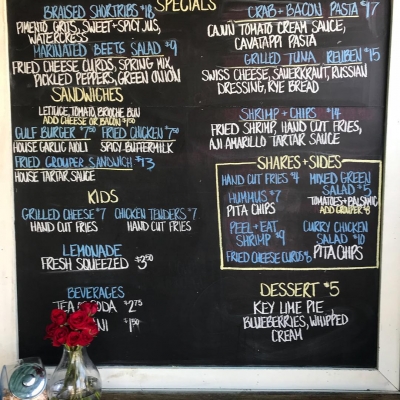 SPECIALS
BRAISED SHORTRIBS $18
PIMENTO GRITS, SWEET + SPICY JUS,
WATERCRESS
MARINATED BEETS SALAD $9
FRIED CHEESE CURDS, SPRING MIX,
PICKLED PEPPERS, GREEN ONION
SANDWICHES
LETTUCE, TOMATO, BRIOCHE BUN
ADD CHEESE OR BACON $1.50
GULF BURGER $7.50 FRIED CHICKEN $7.50
HOUSE GARLIC AIOLI SPICY BUTTERMILK
FRIED GROUPER SANDWICH $13
HOUSE TARTAR SAUCE
KIDS
GRILLED CHEESE $7 CHICKEN TENDERS $7
HAND CUT FRIES HAND CUT FRIES
LEMONADE
FRESH SQUEEZED $3.50
BEVERAGES
TEA SODA $2.75
$1.50
CRAB + BACON PASTA $17
CAJUN TOMATO CREAM SAUCE,
CAVATAPPI PASTA
GRILLED TUNA REUBEN $15
SWISS CHEESE, SAUERKRAUT, RUSSIAN
DRESSING, RYE BREAD
SHRIMP + CHIPS $14
FRIED SHRIMP, HAND CUT FRIES,
AJI AMARILLO TARTAR SAUCE
SHARES + SIDES
HAND CUT FRIES $4
HUMMUS $7
PITA CHIPS
PEEL + EAT
SHRIMP $9
FRIED CHEESE CURDS $8
MIXED GREEN
SALAD $5
TOMATOES + BALSAMIC
ADD GROUPER $8
CURRY CHICKEN
SALAD $10
PITA CHIPS
DESSERT $5
KEY LIME PIE,
BLUEBERRIES, WHIPPED
CREAM